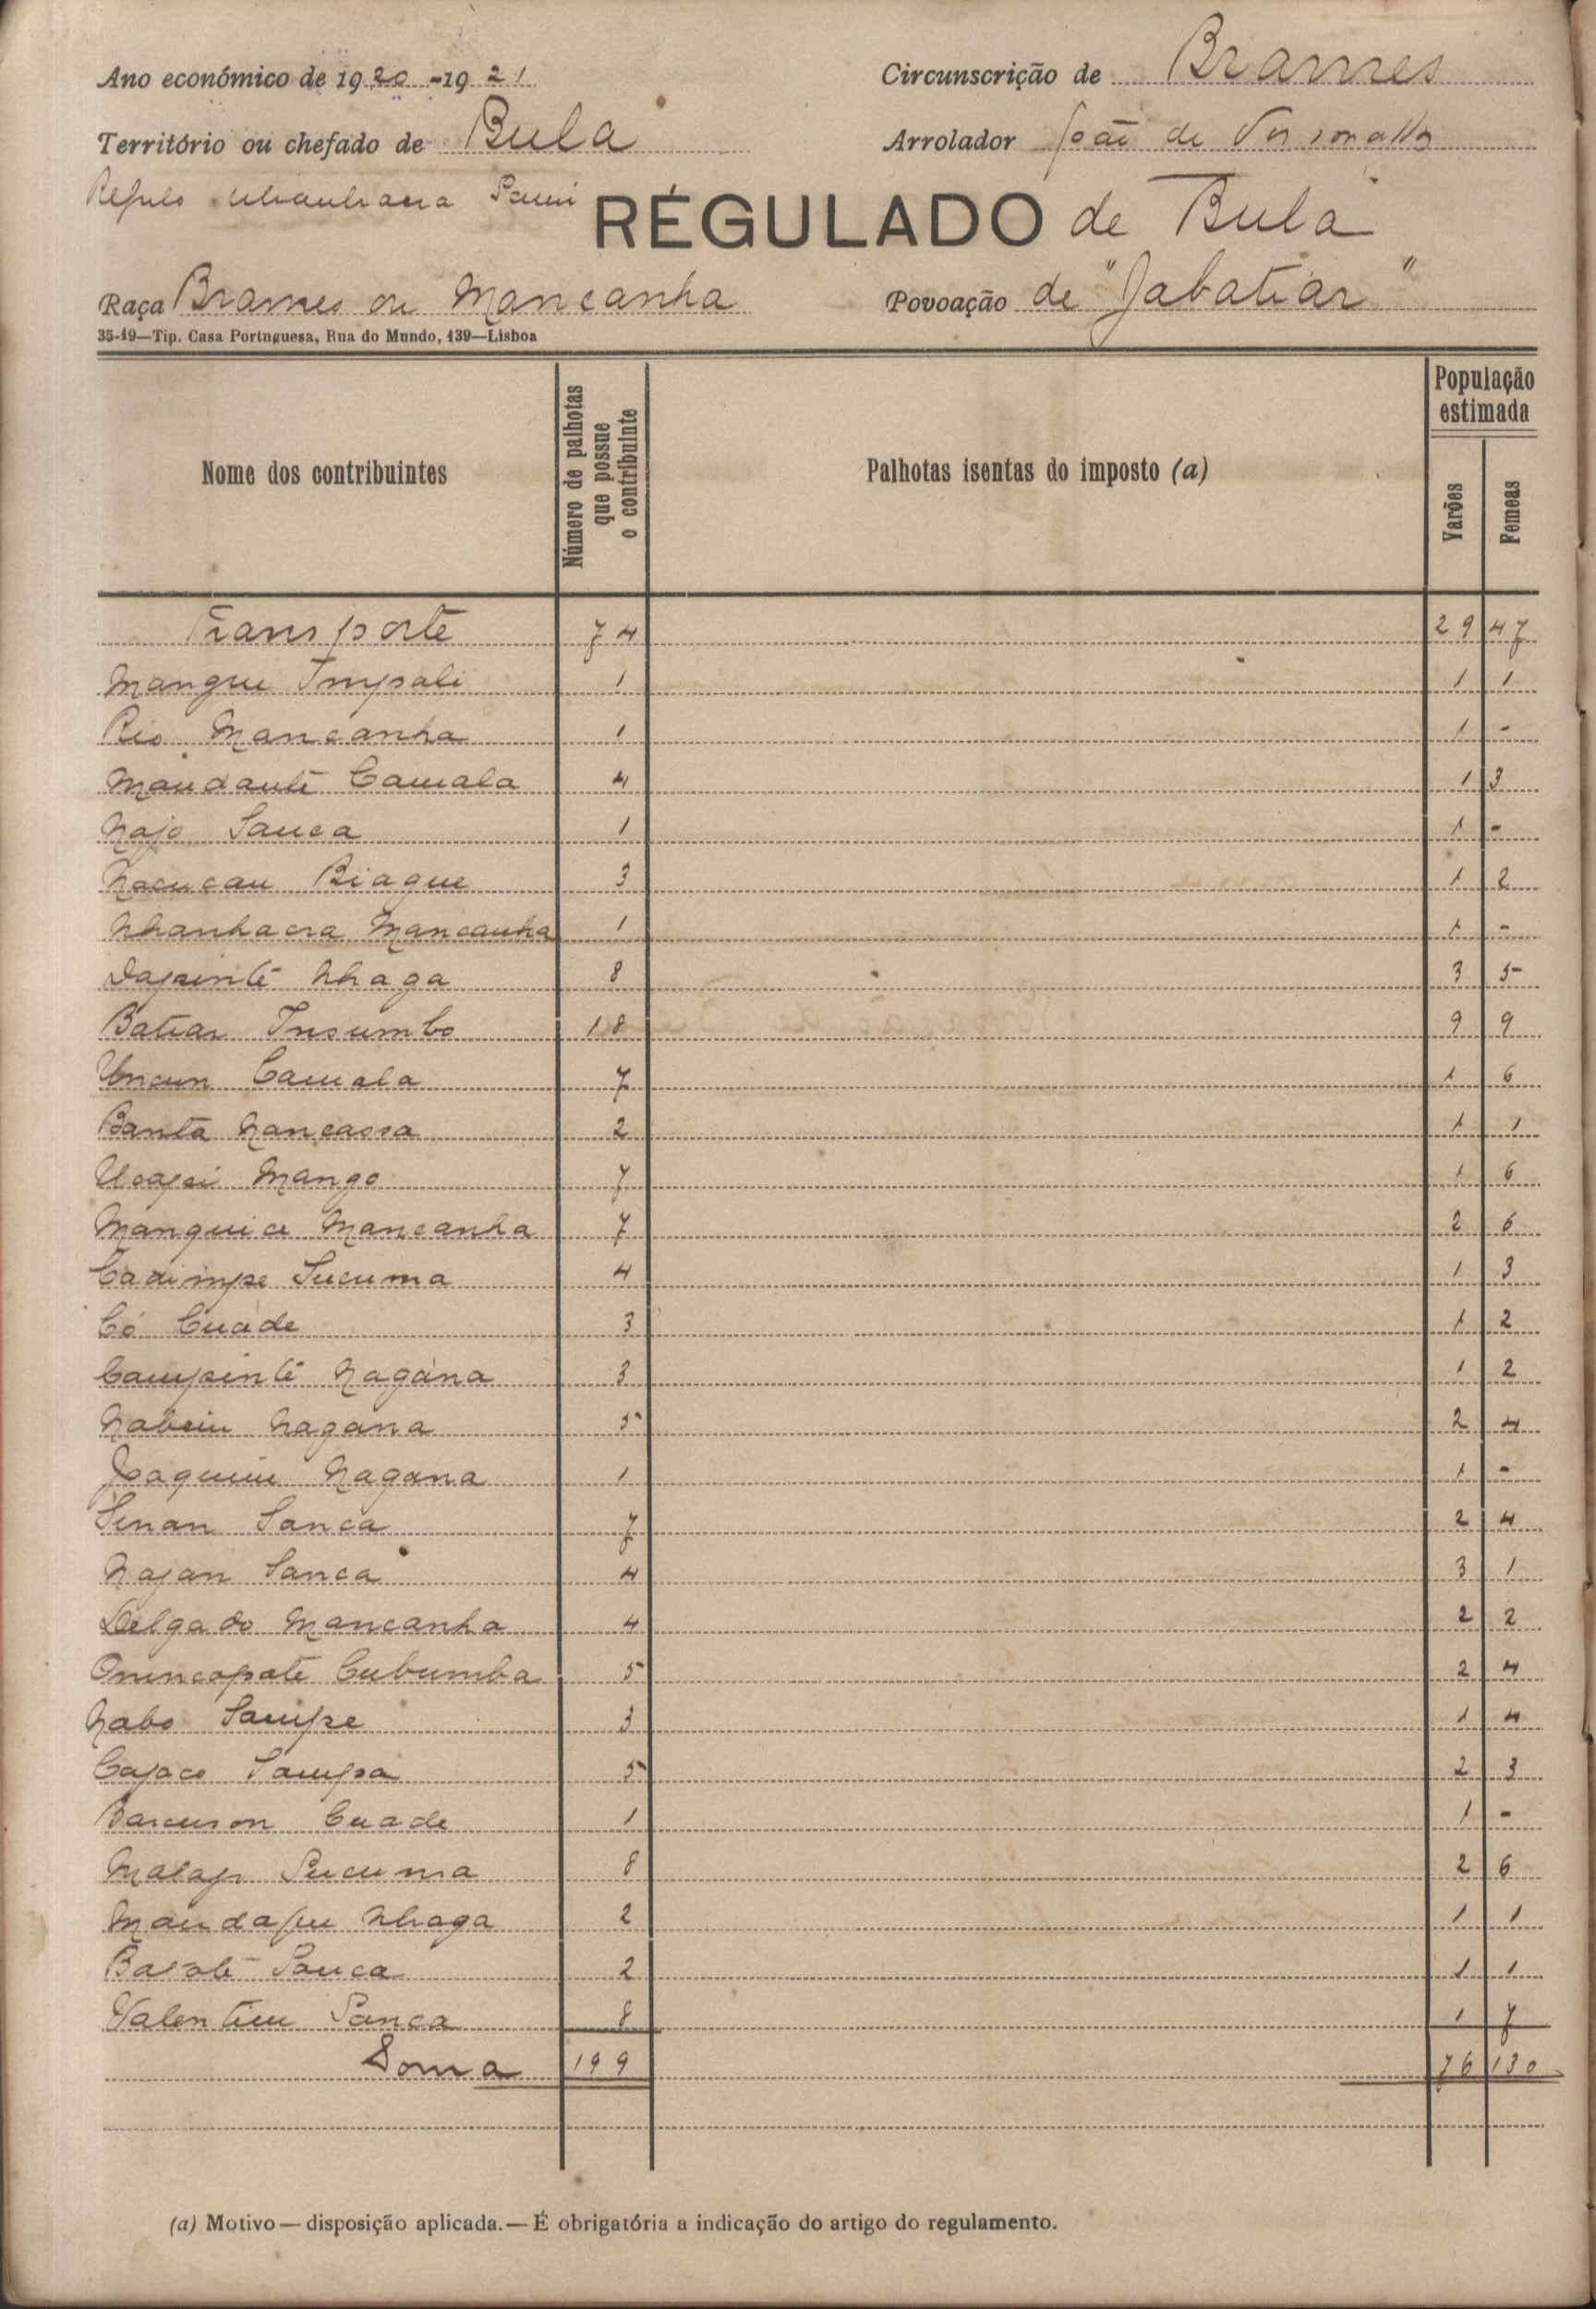 Ano económico de 1920-1921
Circunscrição de Brames
Território ou chefado de Bula
Arrolador João de
Regulo
RÉGULADO de Bula
Raça Brames ou Mancanha
Povoação de "Jabatiar"
35-19—Tip. Casa Portuguesa, Rua do Mundo, 139—Lisboa
Nome dos contribuintes
Número de palhotas que possue o contribuinte
Palhotas isentas do imposto (a)
População estimada
Varões
Femeas
Transporte 74 29 47
Mangue Impali 1 1 1
Rio Mancanha 1 1 -
Maudauté Camala 4 1 3
Najo Sanca 1 1 -
Nacucau Biague 3 1 2
Nhanhacra Mancanha 1 1 -
Dapinté Nhaga 8 3 5
Batiar Insumbo 18 9 9
Uncun Camala 7 1 6
Banta Nancassa 2 1 1
Ucapi Mango 7 1 6
Manquice Mancanha 7 2 6
Cadimpe Sucuma 4 1 3
Có Cuade 3 1 2
Campinté Nagana 3 1 2
Nabiu Nagana 5 2 4
Joaquim Nagana 1 1 -
Sinan Sanca 7 2 4
Najan Sanca 4 3 1
Delgado Mancanha 4 2 2
Onincapaté Cubumba 5 2 4
Nabo Sampe 3 1 4
Cajaco Sampa 5 2 3
Barcuson Cuade 1 1 -
Malap Sucuma 8 2 6
Maudapu Nhaga 2 1 1
Batolé Sanca 2 1 1
Valentim Sanca 8 1 7
Soma 199 76 130
(a) Motivo—disposição aplicada.—É obrigatória a indicação do artigo do regulamento.